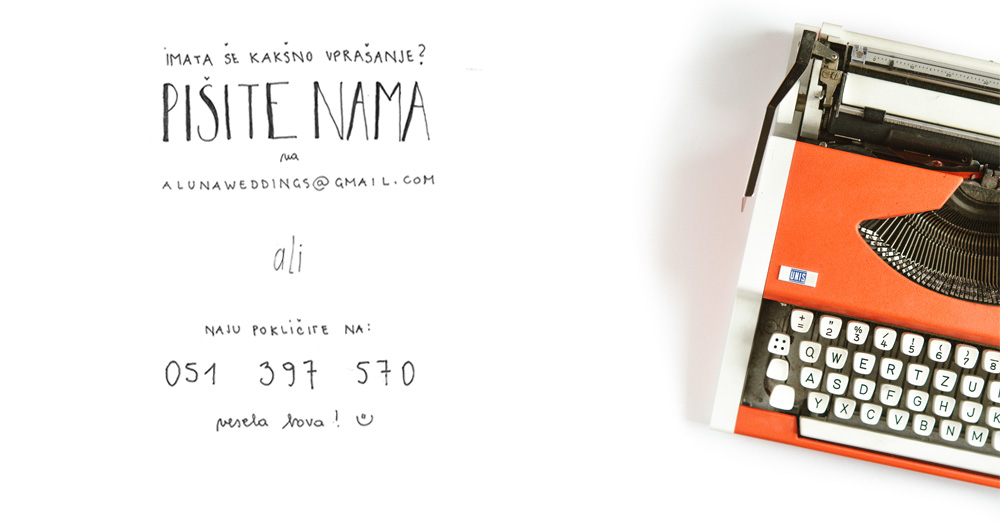 IMATA ŠE KAKŠNO VPRAŠANJE?
PIŠITE NAMA
na
ALUNAWEDDINGS@GMAIL.COM
ali
NAJU POKLIČITE NA:
051 397 570
vesela bova! ☺
UNIS
+ " % / ! ( ) _
= 2 3 4 5 6 7 8
Q W E R T Z U
A S D F G H J K
Y X C V B N M